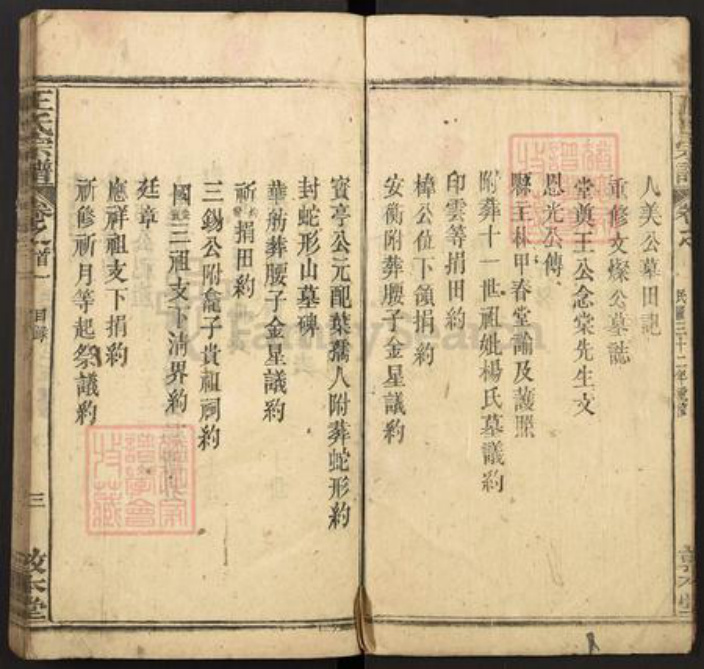 民國三十二年重修
人美公墓田記
重修文燦公墓誌
堂奠王公念棠先生文
恩光公傳
縣主林甲春堂諭及護照
附葬十一世祖妣楊氏墓議約
印雲等捐田約
樟公位下領捐約
安衡附葬腰子金星議約
賓亭公元配葉孺人附葬蛇形約
封蛇形山墓碑
華舫葬腰子金星議約
祈捐田約
三錫公附龕子貴祖祠約
國三祖支下清界約
廷章
應祥祖支下捐約
祈修祈月等起祭議約
王氏宗譜 卷之首一 目錄 三 敦本堂
FamilySearch